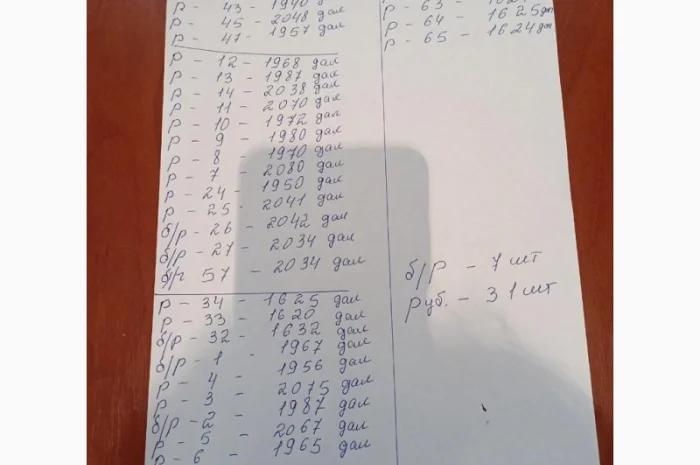 Р - 43 - 1940
Р - 45 - 2048 дал
Р - 47 - 1957 дал
Р - 12 - 1968 дал
Р - 13 - 1987 дал
Р - 14 - 2038 дал
Р - 11 - 2070 дал
Р - 10 - 1972 дал
Р - 9 - 1980 дал
Р - 8 - 1970 дал
Р - 7 - 2080 дал
Р - 24 - 1950 дал
Р - 25 - 2041 дал
б/р - 26 - 2042 дал
б/р - 27 - 2034 дал
б/р 57 - 2034 дал
Р - 34 - 1625 дал
Р - 33 - 1620 дал
б/р - 32 - 1632 дал
б/р - 1 - 1967 дал
Р - 4 - 1956 дал
Р - 3 - 2075 дал
б/р - 2 - 1987 дал
Р - 5 - 2067 дал
Р - 6 - 1965 дал
Р - 63 -
Р - 64 - 1625 дал
Р - 65 - 1624 дал
б/Р - 7 шт
Руб. - 31 шт